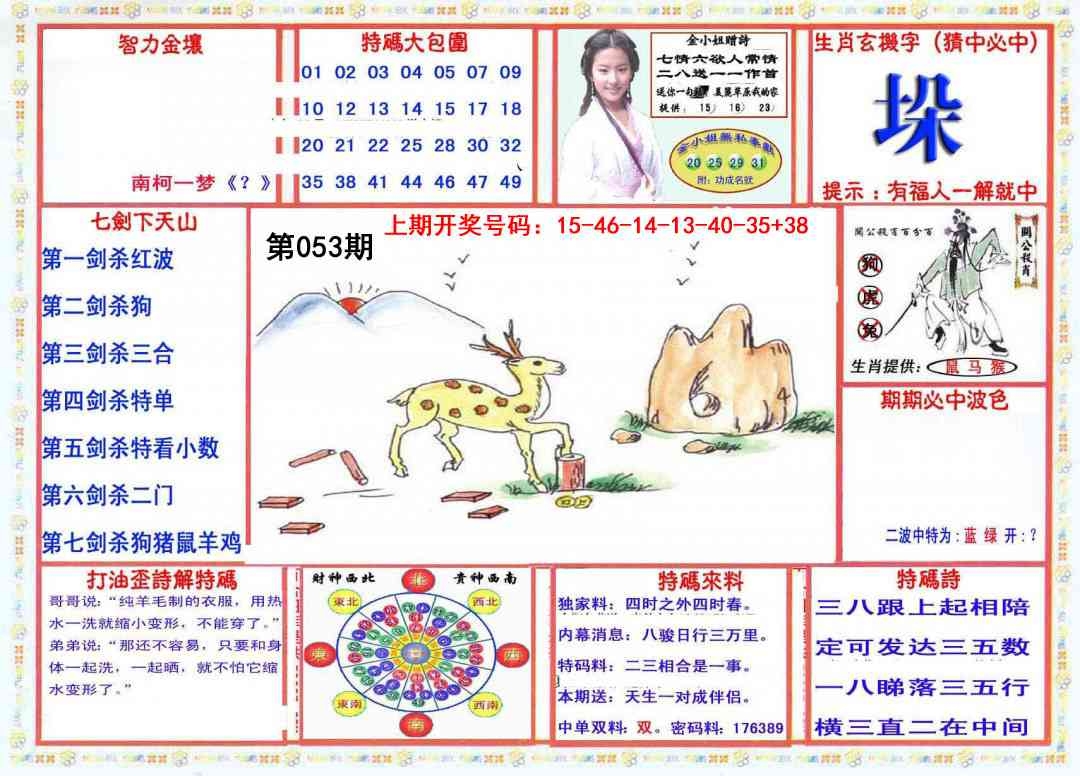 智力金壤
南柯一梦《?》
特碼大包圍
01 02 03 04 05 07 09
10 12 13 14 15 17 18
20 21 22 25 28 30 32
35 38 41 44 46 47 49
金小姐赠詩
七情六欲人常情
二八送一一作首
送你一句 美麗草原我的家
提供: 15) 16) 23)
金小姐無私奉獻
20 25 29 31
附:功成名就
生肖玄機字(猜中必中)
垛
提示:有福人一解就中
七劍下天山
第一剑杀红波
第二剑杀狗
第三剑杀三合
第四剑杀特单
第五剑杀特看小数
第六剑杀二门
第七剑杀狗猪鼠羊鸡
上期开奖号码:15-46-14-13-40-35+38
第053期
關公殺肖百分百
關公殺肖
狗
虎
兔
生肖提供: 鼠 马 猴
期期必中波色
二波中特为:蓝 绿 开:?
打油歪詩解特碼
哥哥说:“纯羊毛制的衣服,用热
水一洗就缩小变形,不能穿了。”
弟弟说:“那还不容易,只要和身
体一起洗,一起晒,就不怕它缩
水变形了。”
財神西北
貴神西南
北
東北
西北
東
西
東南
西南
南
特碼來料
独家料:四时之外四时春。
内幕消息:八骏日行三万里。
特码料:二三相合是一事。
本期送:天生一对成伴侣。
中单双料:双。密码料:176389
特碼詩
三八跟上起相陪
定可发达三五数
一八睇落三五行
横三直二在中间